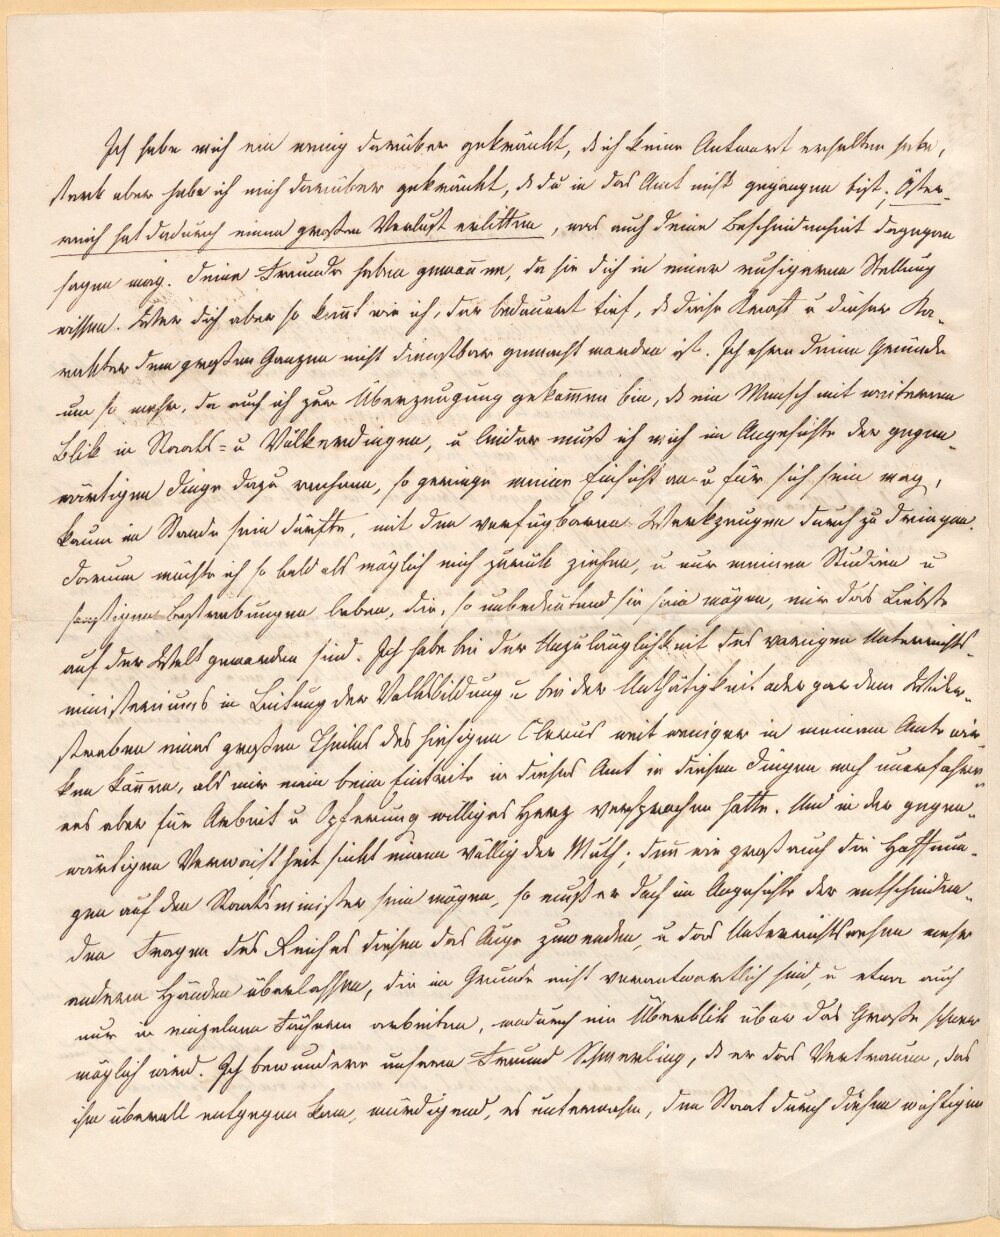 Ich habe mich ein wenig darüber gekränkt, dß ich keine Antwort erhalten habe,
stark aber habe ich mich darüber gekränkt, dß du in das Amt nicht gegangen bist; Öster-
reich hat dadurch einen großen Verlust erlitten, was auch deine Bescheidenheit dagegen
sagen mag. Deine Freunde haben gewonnen, da sie dich in einer ruhigeren Stellung
wissen. Wer dich aber so kennt wie ich, der bedauert tief, dß diese Kraft u dieser Ka-
rakter dem großen Ganzen nicht dienstbar gemacht worden ist. Ich ehre deine Gründe
um so mehr, da auch ich zur Überzeugung gekommen bin, dß ein Mensch mit weiterem
Blik in Staats- u Völkerdingen, u leider muß ich mich im Angesichte der gegen-
wärtigen Dinge dazu rechnen, so geringe meine Einsicht an u für sich sein mag,
kaum im Stande sein dürfte, mit den verfügbaren Werkzeugen durch zu dringen.
Darum möchte ich so bald als möglich mich zurük ziehen, u nur meinen Studien u
sonstigen Bestrebungen leben, die, so unbedeutend sie sein mögen, mir das Liebste
auf der Welt geworden sind. Ich habe bei der Unzulänglichkeit des vorigen Unterrichts-
ministeriums in Leitung der Volksbildung u bei der Unthätigkeit oder gar dem Wider-
streben eines großen Theiles des hiesigen Clerus weit weniger in meinem Amte wir-
ken können, als mir mein beim Eintritte in dieses Amt in diesen Dingen noch unerfahren-
es aber für Arbeit u Opferung williges Herz versprochen hatte. Und in der gegen-
wärtigen Verwaistheit sinkt einem völlig der Muth; denn wie groß auch die Hoffnun-
gen auf den Staatsminister sein mögen, so muß er doch im Angesichte der entscheiden-
den Fragen des Reiches diesen das Auge zuwenden, u das Unterrichtswesen mehr
anderen Händen überlassen, die im Grunde nicht verantwortlich sind, u etwa auch
nur in einzelnen Fächern arbeiten, wodurch ein Überblik über das Große schwer
möglich wird. Ich bewundere unsern Freund Schmerling, dß er das Vertrauen, das
ihm überall entgegen kam, würdigend, es unternahm, den Staat durch diesen wichtigen